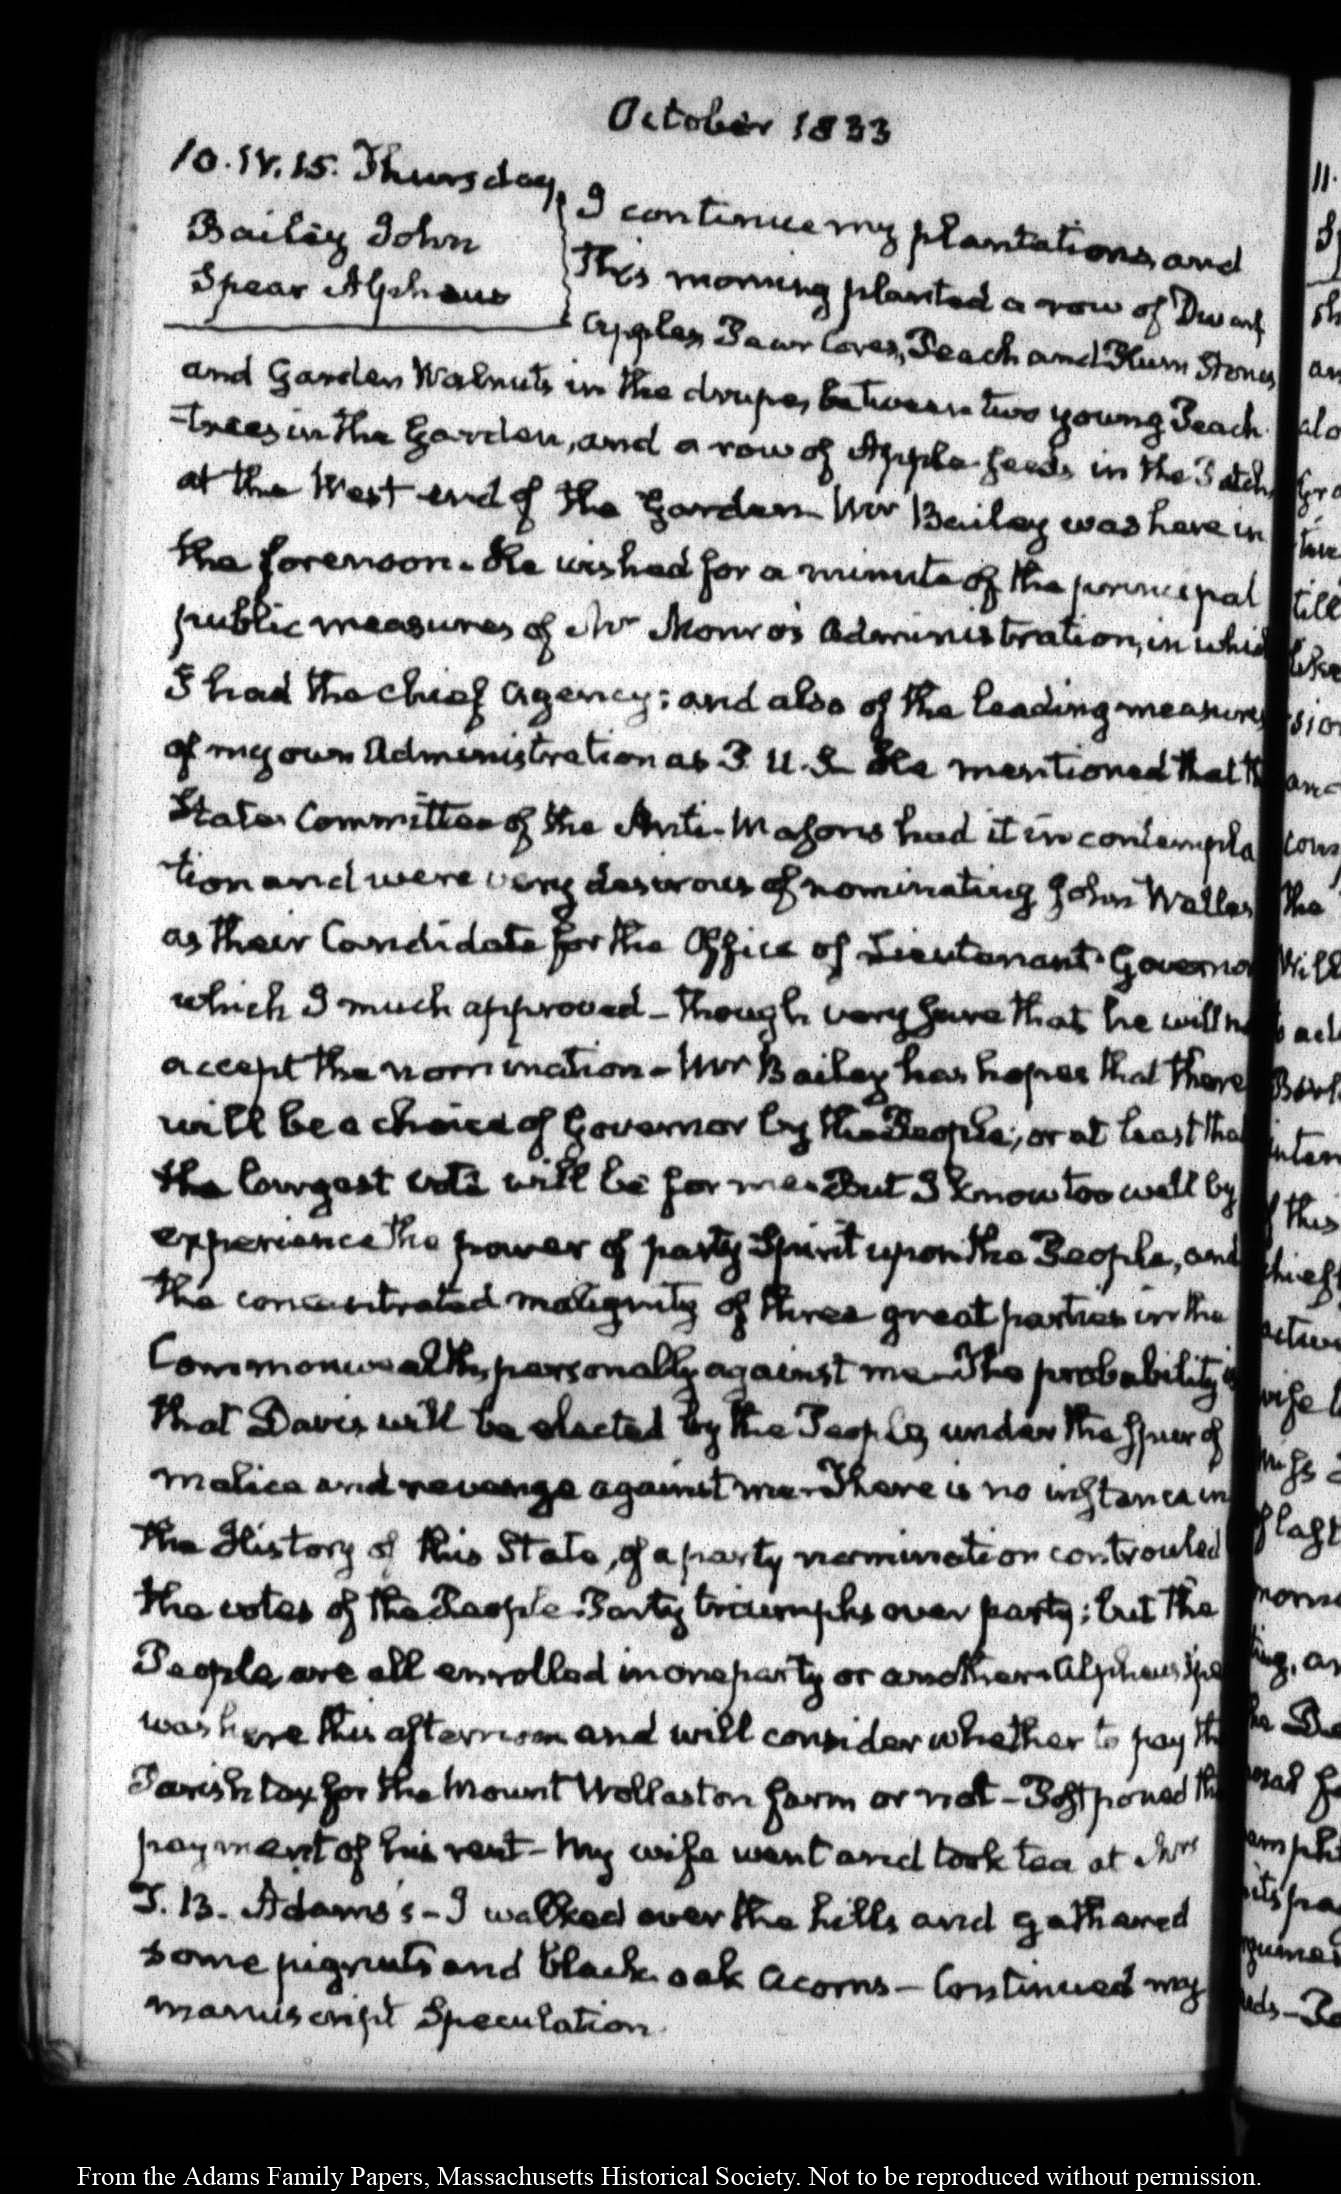 October 1833
10. IV. 15. Thursday
Bailey John
Spear Alpheus
I continue my plantations, and
This morning planted a row of Dwarf
Apples, Pear Cores, Peach and Plum Stones
and Garden Walnuts in the drupes, between two young Peach
-trees in the Garden, and a row of Apple seeds in the Patch
at the West end of the Garden— Mr Bailey was here in
the forenoon. He wished for a minute of the principal
public measures of Mr Monro's Administration, in which
I had the chief agency: and also of the leading measures
of my own Administration as P. U. S— He mentioned that th
State Committee of the Anti-Masons had it in contempla
tion and were very desirous of nominating John Welles
as their Candidate for the Office of Lieutenant-Governor
which I much approved— though very sure that he will n
accept the nomination— Mr Bailey has hopes that there
will be a choice of Governor by the People; or at least tha
the largest vote will be for me— But I know too well by
experience the power of party Spirit upon the People, and
the concentrated malignity of three great parties in the
Commonwealth, personally against me— The probability is
that Davis will be elected by the People, under the spur of
malice and revenge against me— There is no instance in
the History of this State, of a party nomination controuled
the votes of the People. Party triumphs over party; but the
People, are all enrolled in one party or another— Alpheus Spe
was here this afternoon and will consider whether to pay th
Parish tax for the Mount Wollaston farm or not— Postponed th
payment of his rent— My wife went and took tea at Mrs
T. B. Adams's— I walked over the hills and gathered
some pignuts and black oak acorns— Continued my
manuscript Speculation.
From the Adams Family Papers, Massachusetts Historical Society. Not to be reproduced without permission.